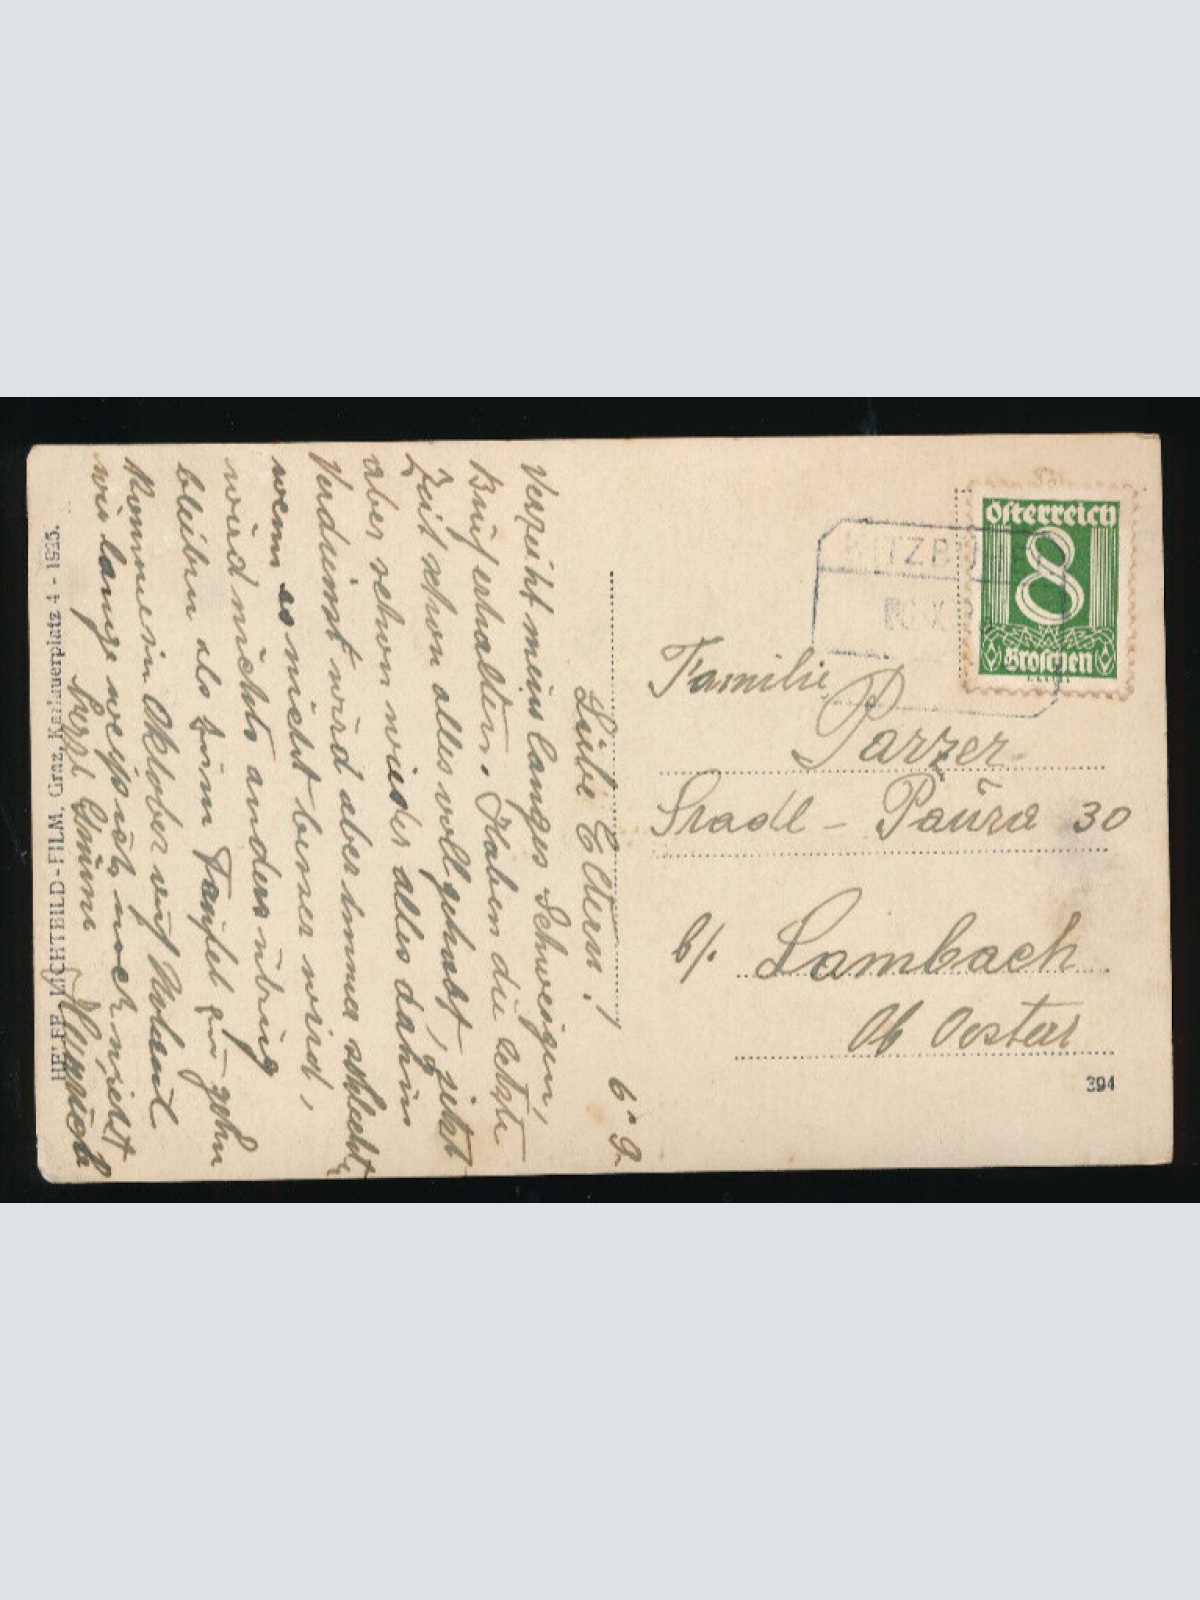 6. 9.
Liebe Eltern!
Verzeiht mein langes Schweigen,
Brief erhalten. Haben die letzte
Zeit schon alles voll gehabt, jetzt
aber schon wieder alles dahin
Verdienst wird aber immer schlecht,
wenn es nicht besser wird,
wird nichts anders übrig
bleiben als zum Teufel zu gehn
Kommen Oktober auf
wie lange weiß ich noch nicht
Herzl Grüße
Heinrich
HELFF, LICHTBILD-FILM, Graz, Karlauerplatz 4 - 1925.
österreich
8
Groschen
KITZBÜ
Familie
Parzer
Stadl - Paura 30
b/. Lambach
Ob Oester
394